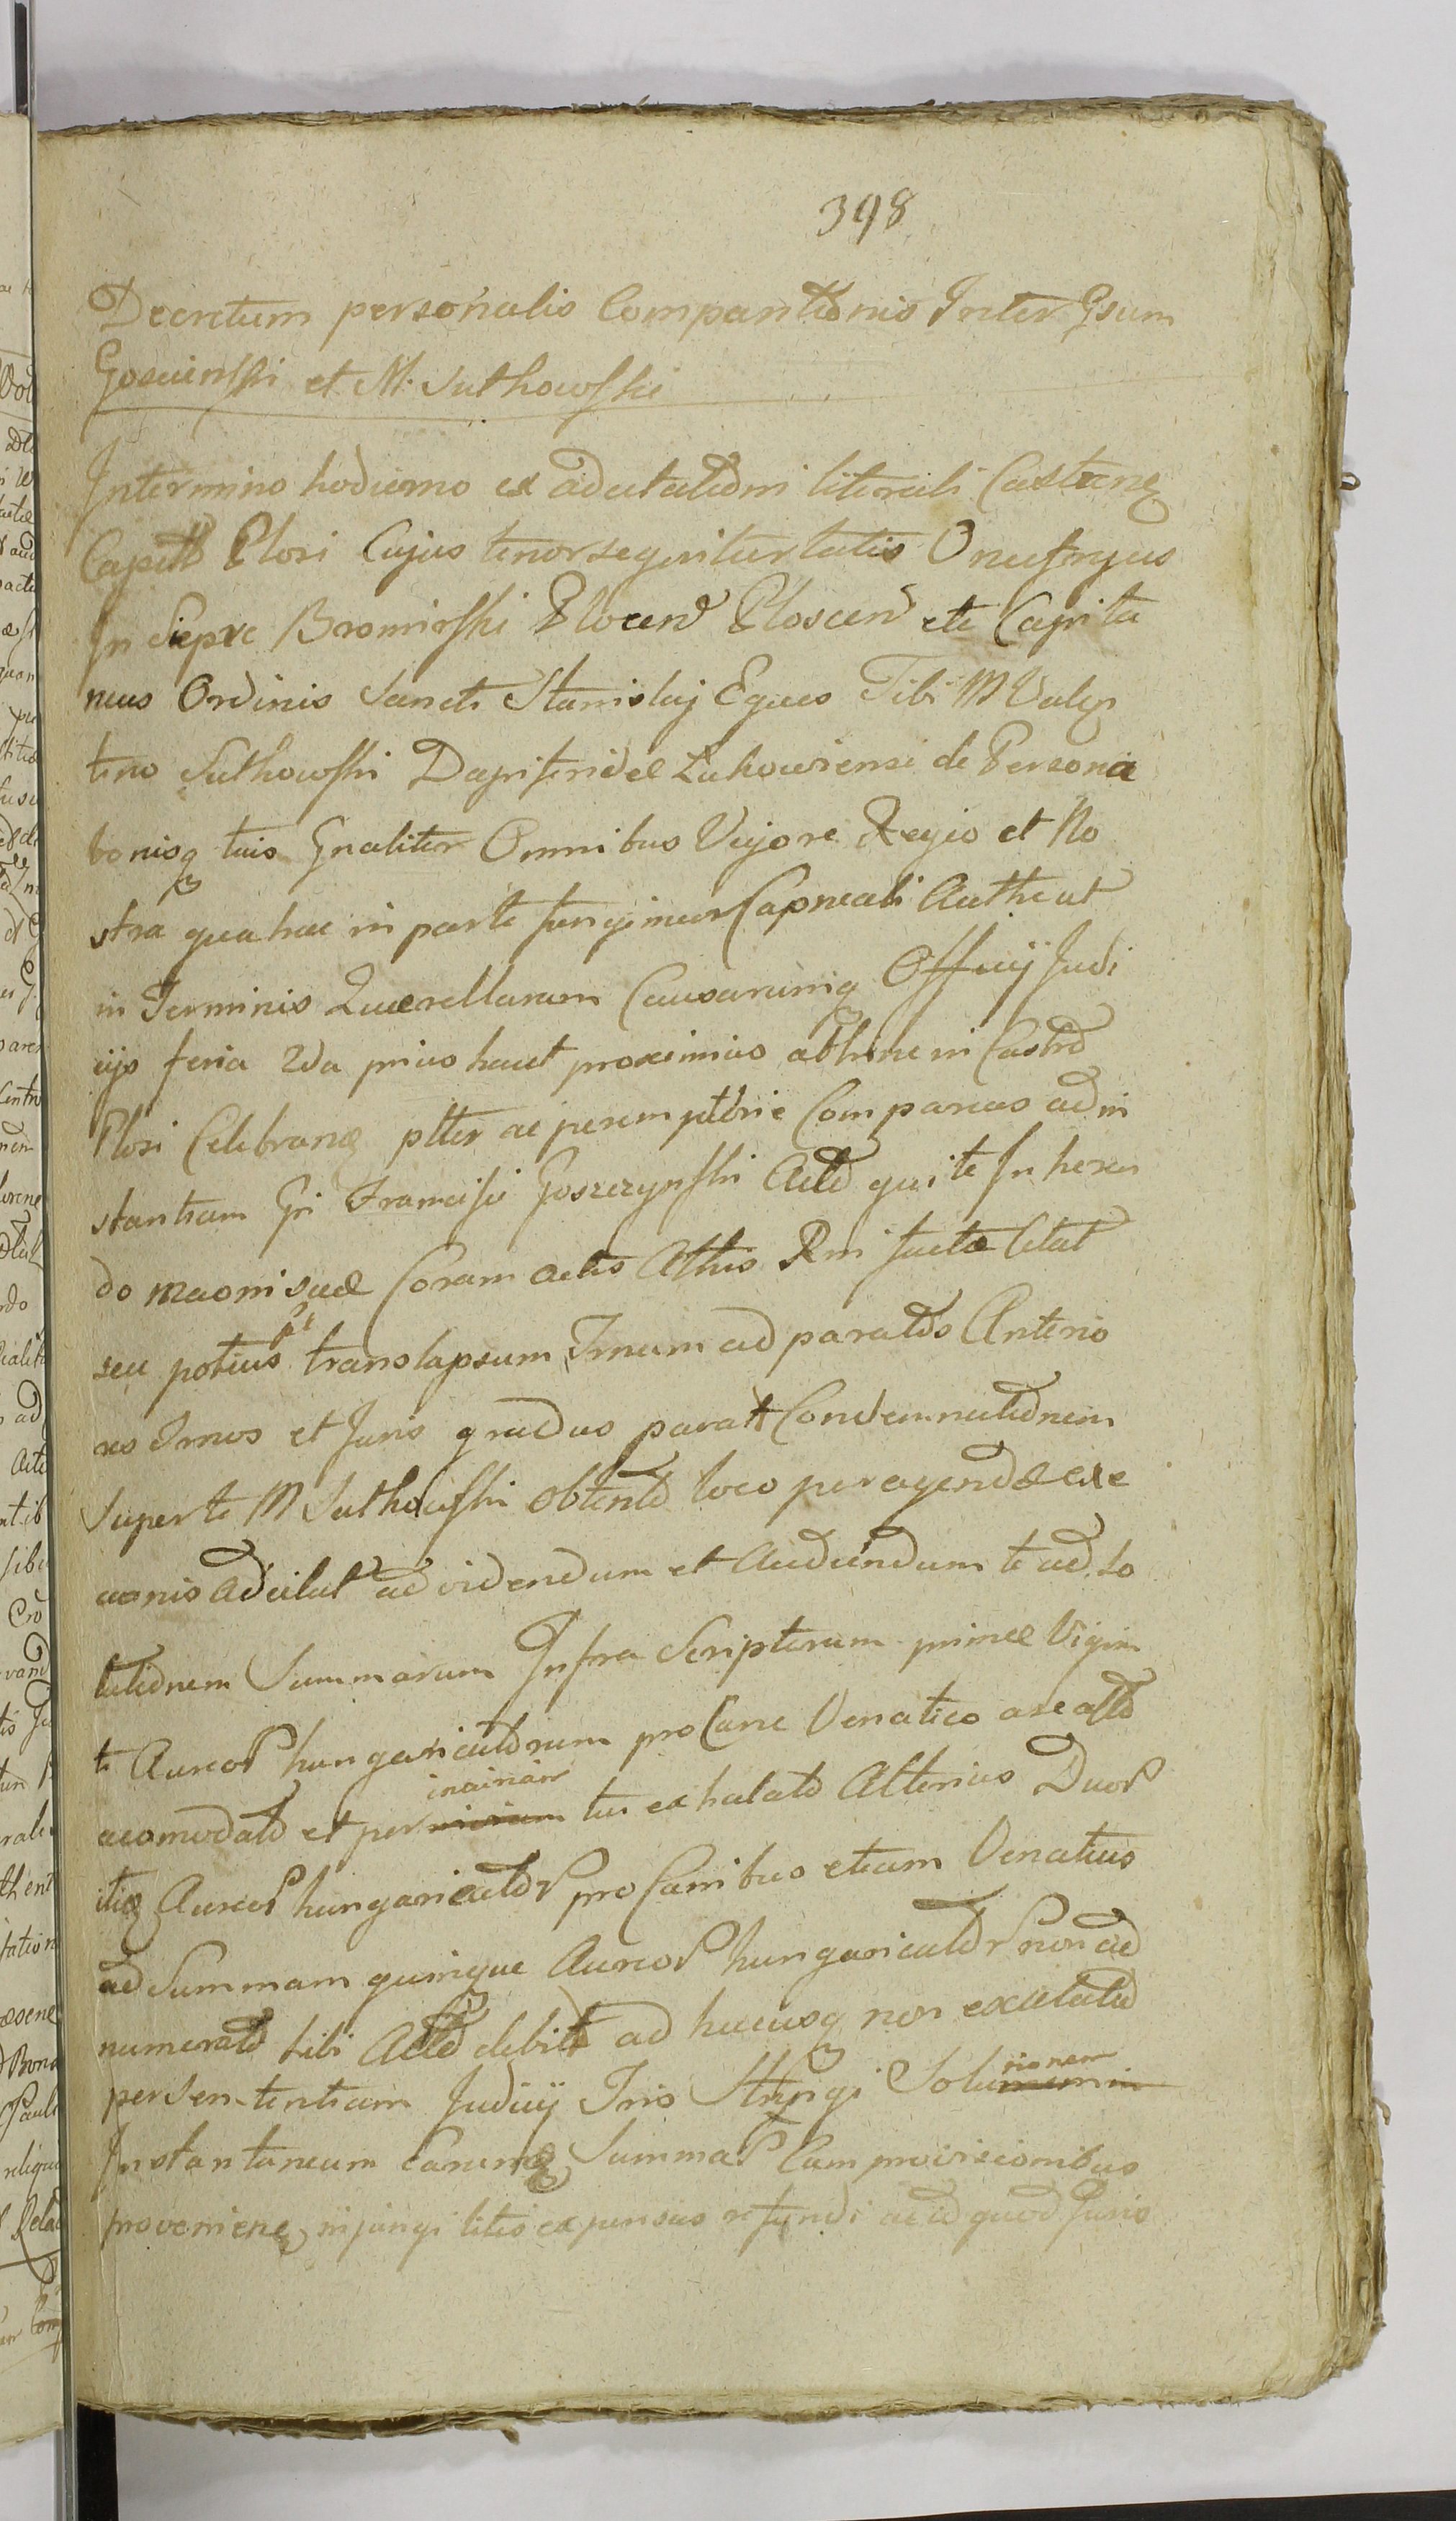 398
Decretum personalis Comparitionis Inter Gsum
Goscinski et M. Sutkowski
Intermino hodierno ex adcitationi literali Castrene
Capitli Plosi Cujus tenor sequitur talis Onufryus
In Siepre Bromirski Plocen Ploscen etc Capita
neus Ordinis Sancti Stanislaj Eques Tibi M Valen
tino Sutkowski Dapiferidae Lukowiensi de Persona
bonisq tuis Gnaliter Omnibus Vigore Regio et No
stra qua hac in parte fungimur Capneali Authent
in Terminis Querellarum Causarumq Officij Judi
cijs feria 2da prius haut proximius abhinc in Castro
Plosi Celebrane ptter ac peremptorie Compareas ad in
stantiam Gri Francisci Goszczynski Acto qui te In heren
do maoni suae Coram actis Athis Rni factae Citat
seu potius pt translapsum Tmum ad paratos Anterio
res Tmos et Juris gradus parat Condemnationem
super te M Sutkowski obtento loco peragendae exe
uonis adcitat ad videndum et Audiendum te ad so
lutionem Summarum Infra Scriptarum primae Vigin
ti Aureor hungaricalorum pro Cane Venatico are alto
acomodato et per inainam te exhalato Alterius Duor
itiq Aureor hungaricalor pro Canibus etiam Venaticis
ad Summam quinque Aureor hungaricalor non ad
numerato tibi Acto debit ad hucusq non exolutato
per Sententiam Judicij Tris Stringi Solutionem
Instantaneum Earumq Summar Cum provisionibus
proveniene injungi litis expensas refundi ac id quod Juris